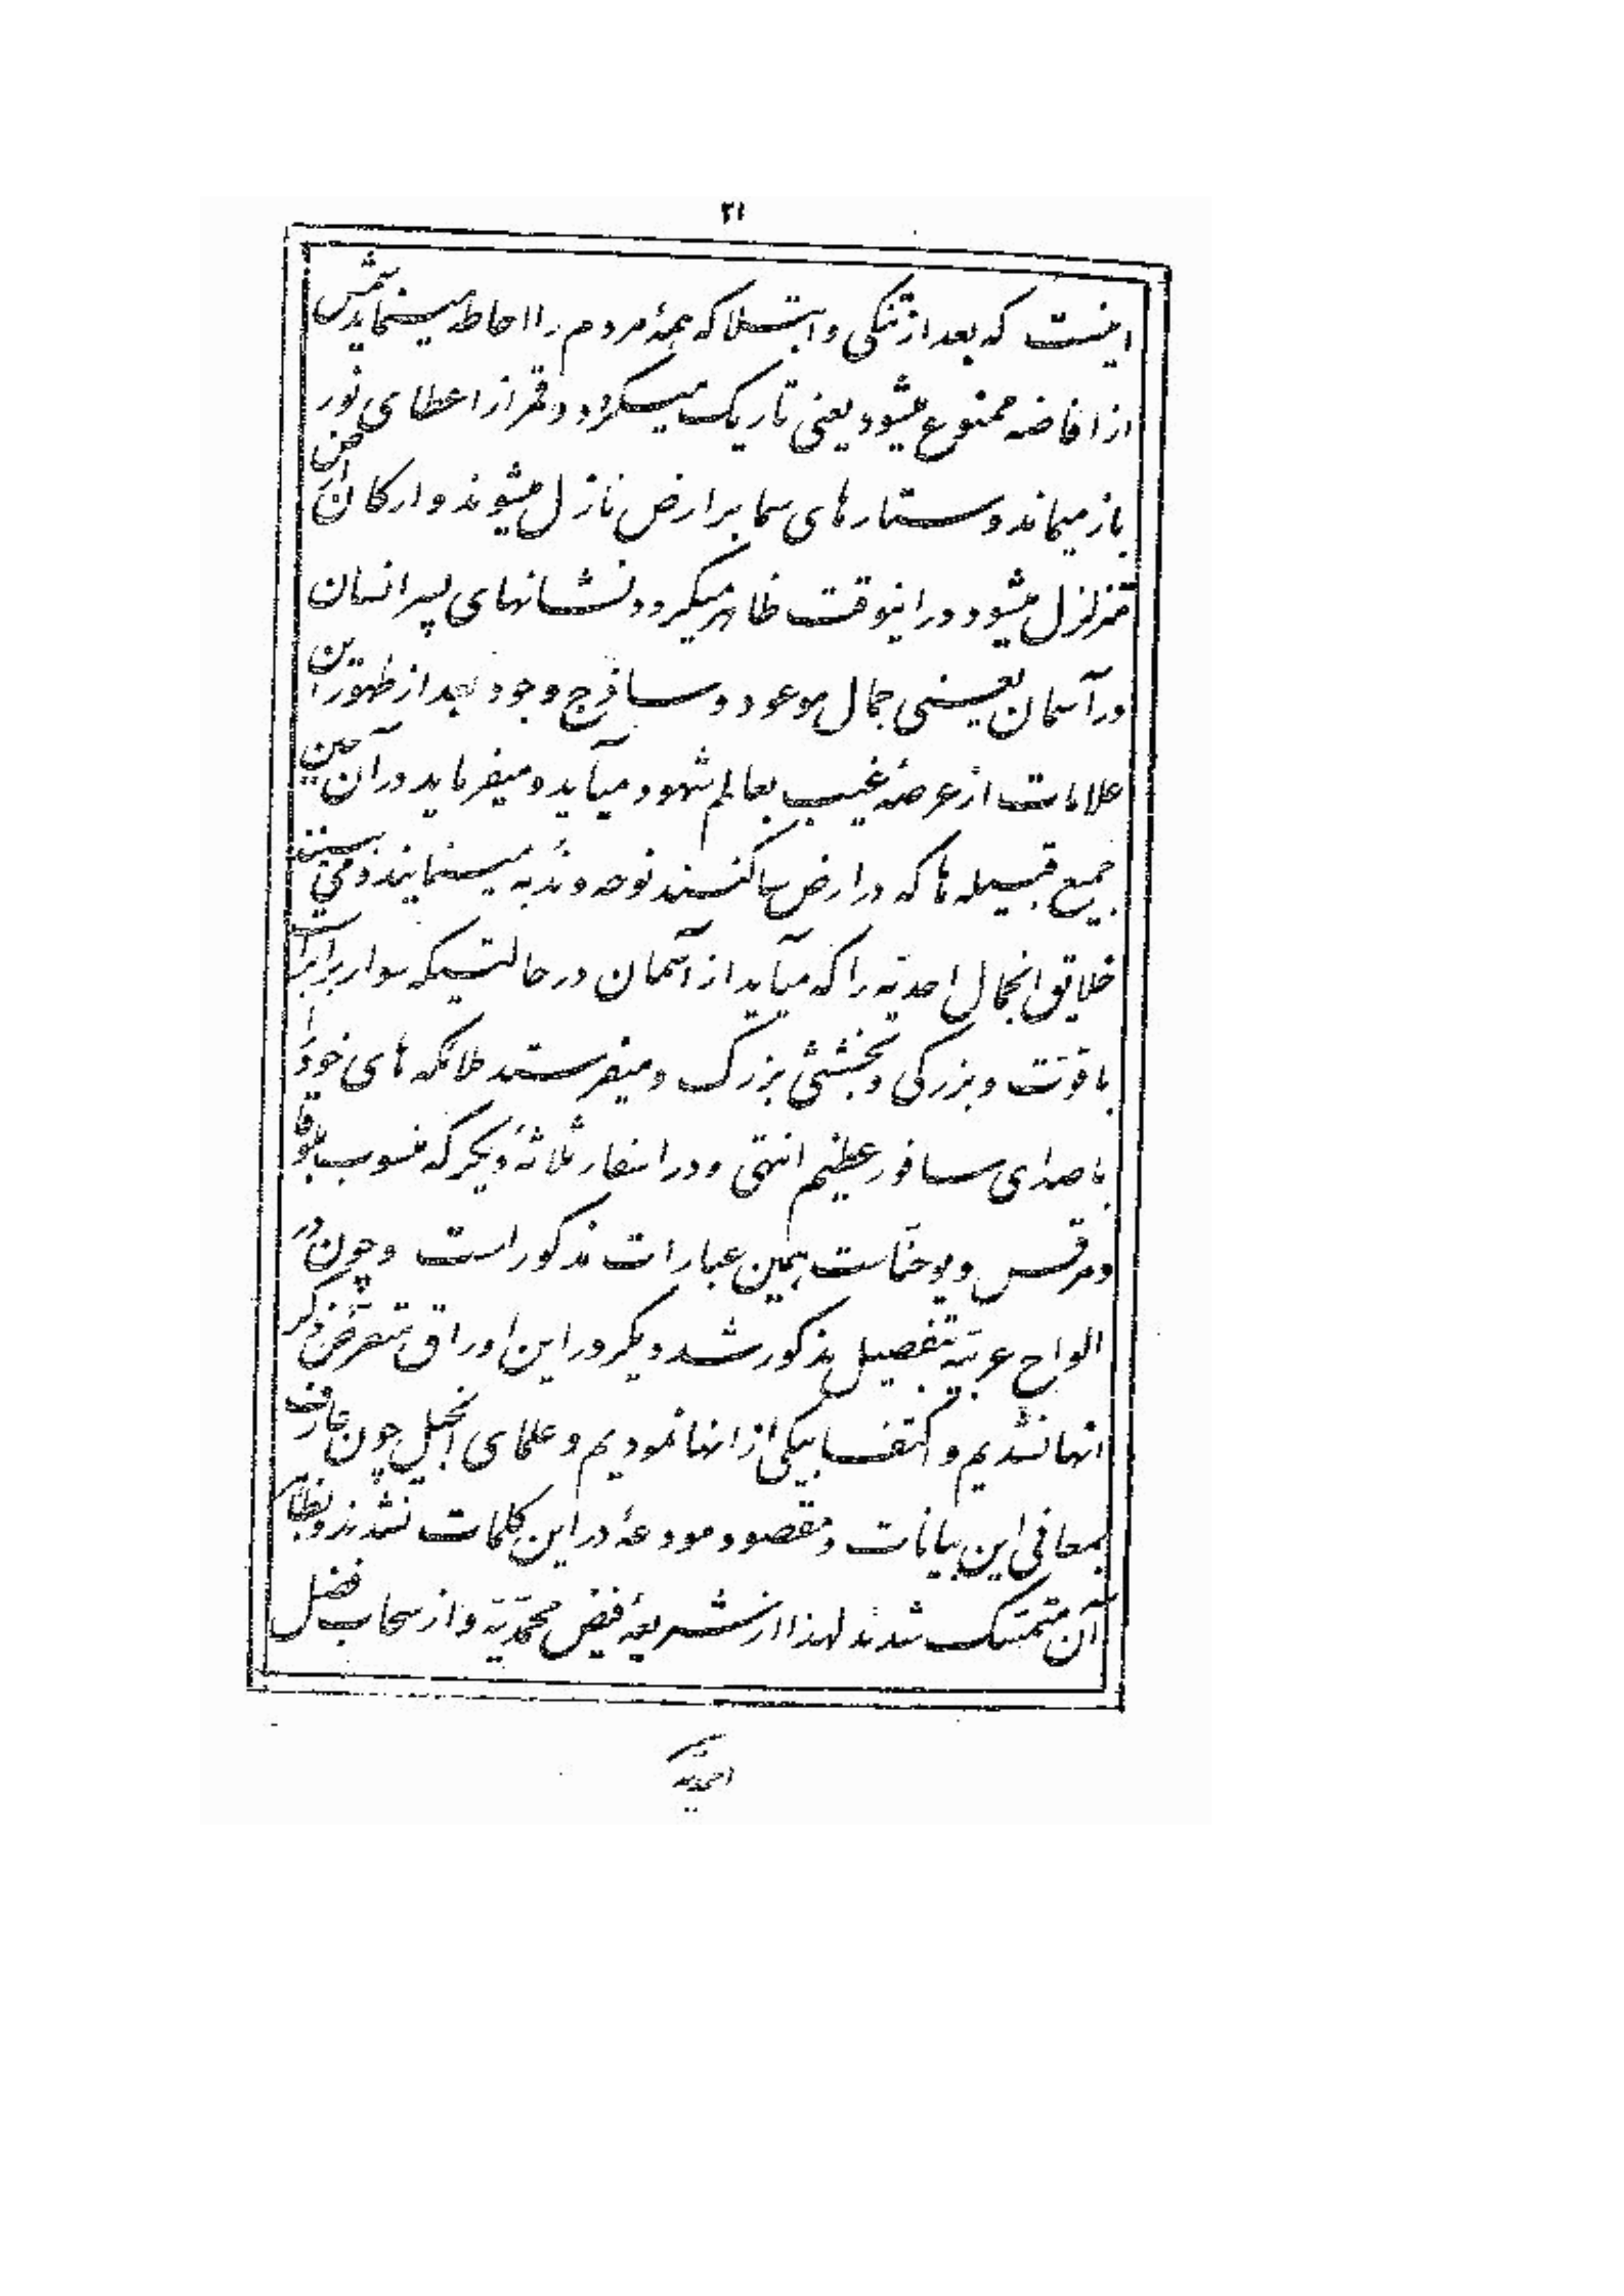 ۲۱
اینست که بعد از تنگی و ابتلا که همهٔ مردم را احاطه مینماید شمس
از افاضه ممنوع میشود یعنی تاریک میگردد و قمر از اعطای نور
باز میماند و ستارهای سما بر ارض نازل میشوند و ارکان ارض
متزلزل میشود در اینوقت ظاهر میگردد نشانهای پسر انسان
در آسمان یعنی جمال موعود و ساذج وجود بعد از ظهور این
علامات از عرصهٔ غیب بعالم شهود میآید و میفرماید در آن حین
جمیع قبیله ها که در ارض ساکنند نوحه و ندبه مینمایند و می بینند
خلایق انجمال احدیّه را که میآید از آسمان در حالتیکه سوار بر ابر است
با قوّت و بزرگی و بخششی بزرگ و میفرستد ملائکه های خود را
با صدای سافور عظیم انتهی و در اسفار ثلاثهٔ دیگر که منسوب بلوقا
و مرقس و یوحنّاست همین عبارات مذکور است و چون در
الواح عربیّه بتفصیل مذکور شد دیگر در این اوراق متعرّض ذکر
انها نشدیم و اکتفا بیکی از انها نمودیم و علمای انجیل چون عارف
بمعانی این بیانات و مقصود مودعهٔ در این کلمات نشدند و بظاهر
آن متمسّک شدند لهذا از شریعهٔ فیض محمّدیّه و از سحاب فضل
احمدیّه